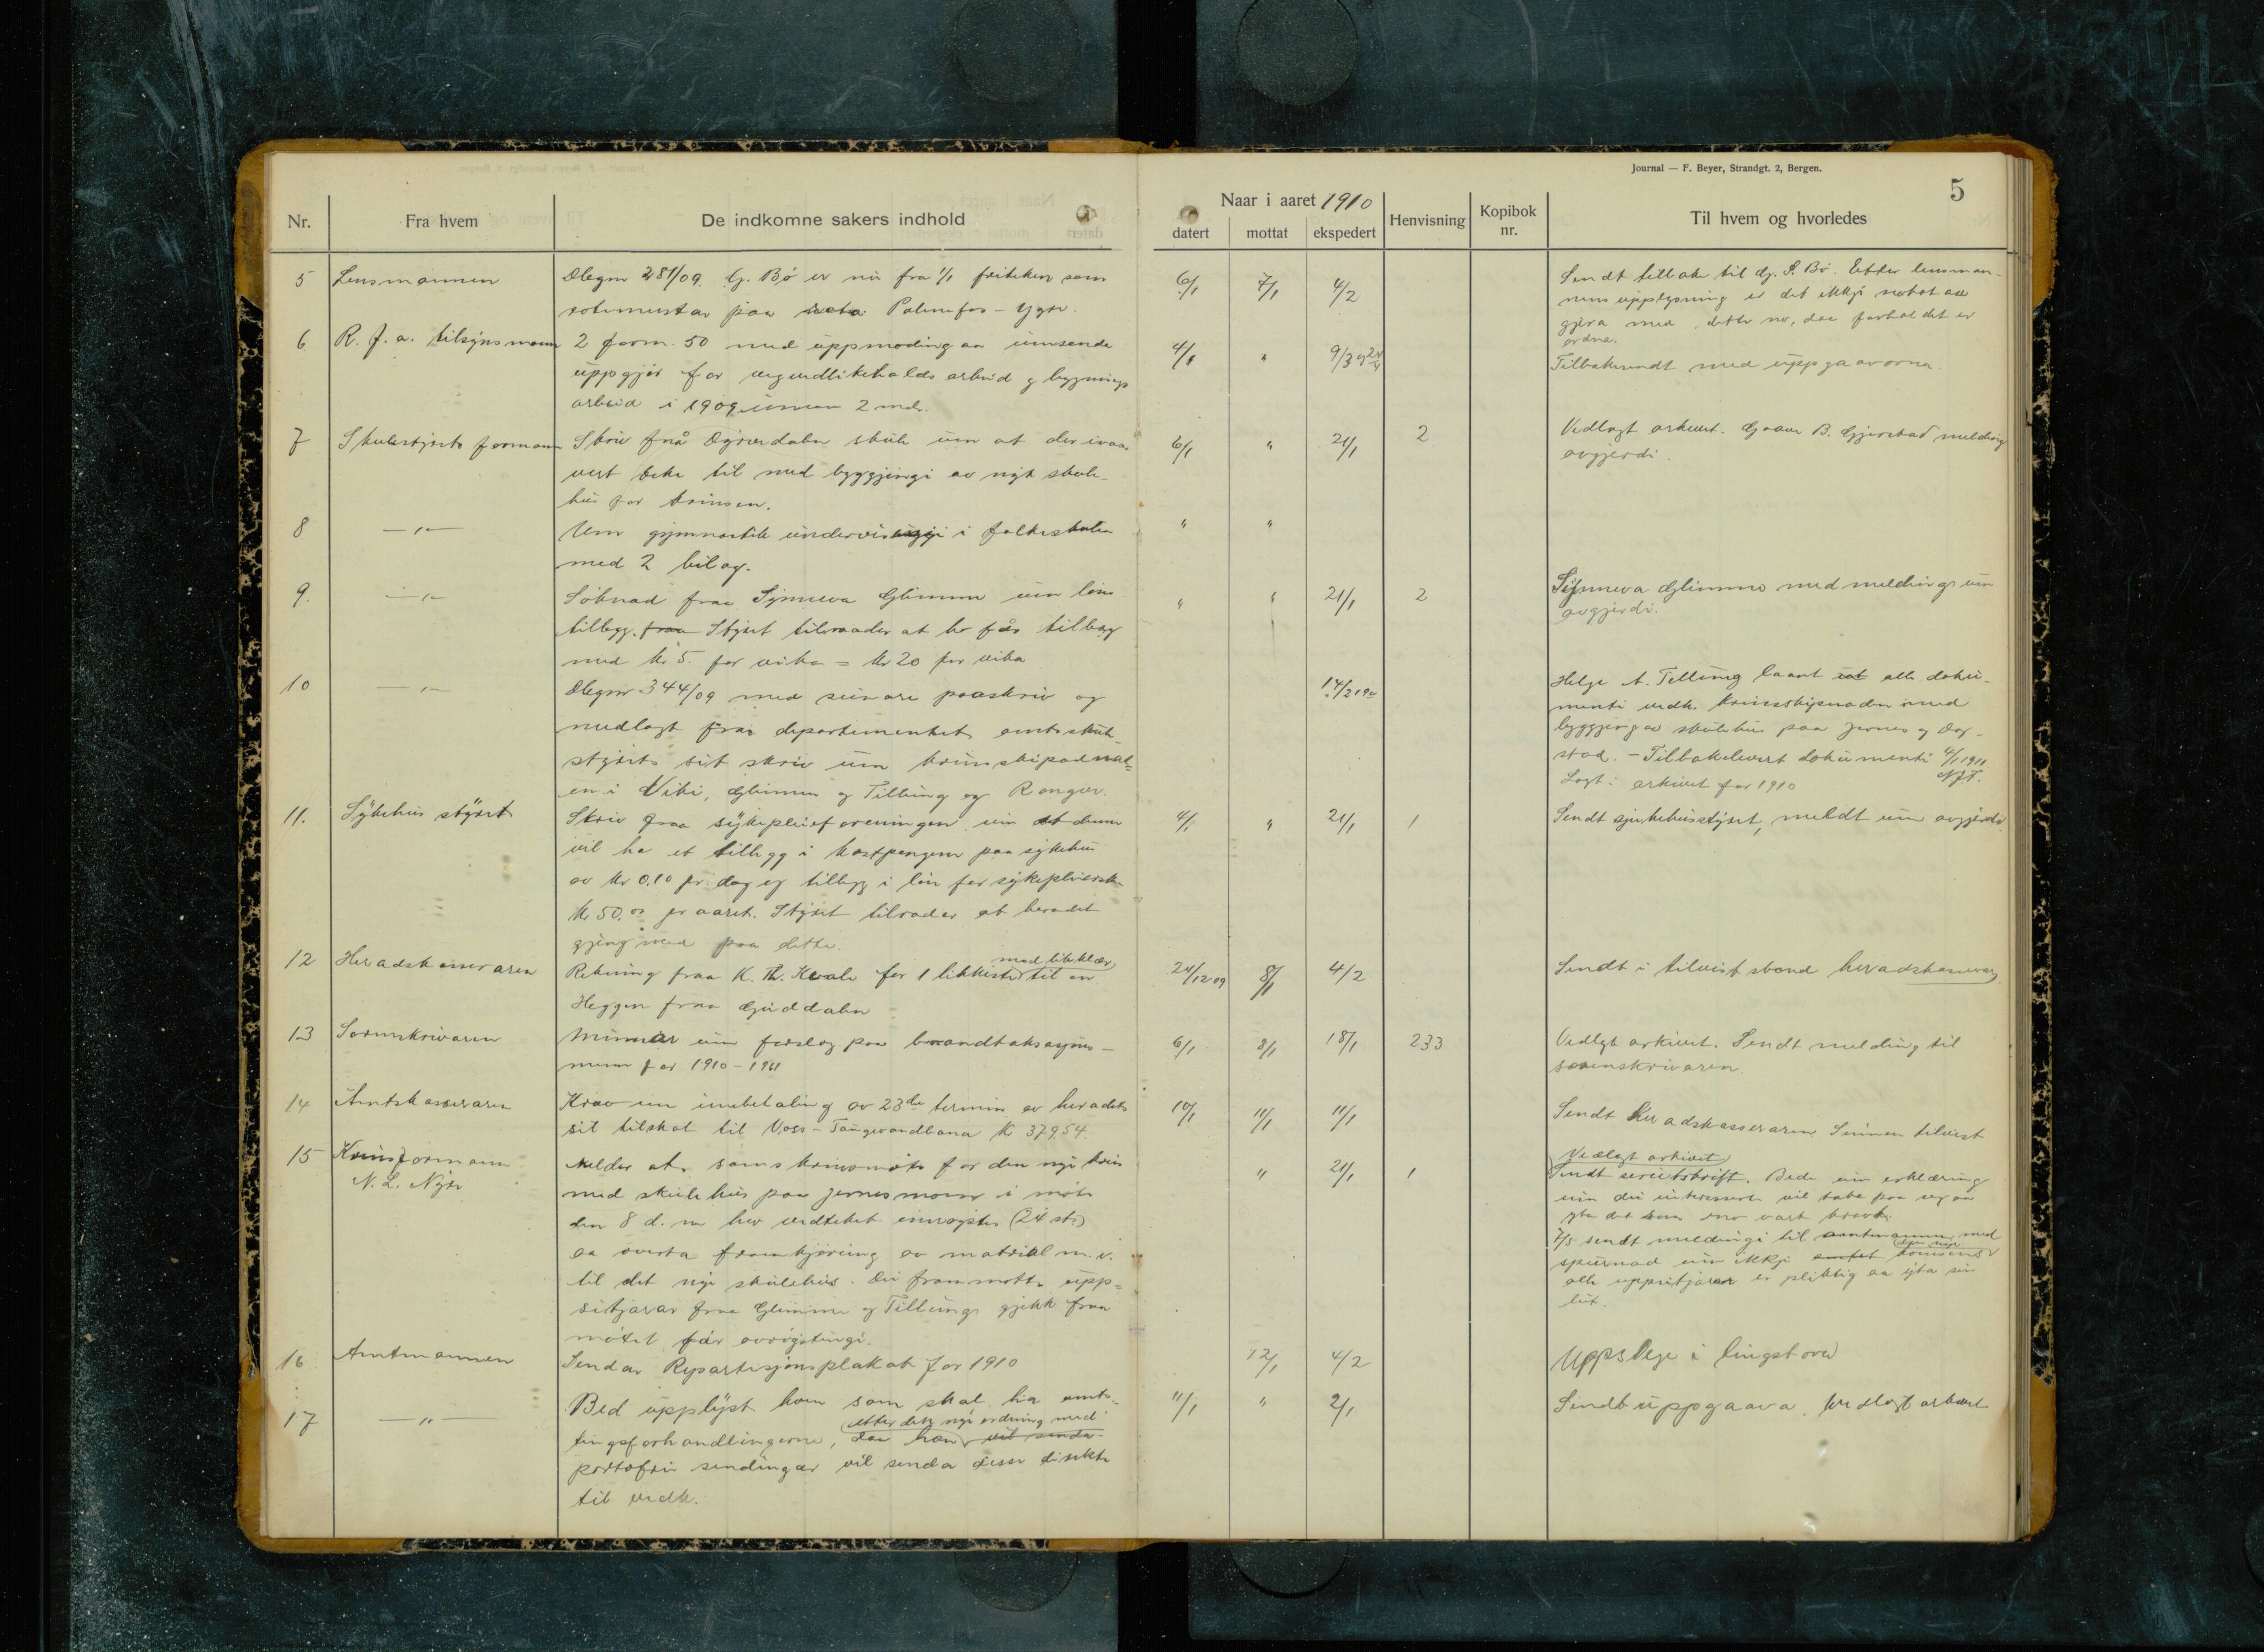 Journal — F. Beyer, Strandgt. 2, Bergen.
5
Nr.
Fra hvem
De indkomne sakers indhold
Naar i aaret 1910
datert
mottat
ekspedert
Henvisning
Kopibok nr.
Til hvem og hvorledes
5 Lensmannen
281/09. G. Bø er nu fra 1/1 friteken som
rotemeistar paa Palmefos - Ygre.
6/1 7/1 4/2
Sendt tilbake til G. S. Bø. Etter lensman-
nens upplysning er det ikkje noko aa
gjera med dette no, daa forholdet er
ordna.
6 R. f. a. tilsynsmann
2 form. 50 med uppmoding aa innsende
uppgjør for vegvedlikeholds arbeid og bygnings
arbeid i 1909 innan 2 mdr.
4/1 " 9/3 og
Tilbakesendt med uppgaavorna.
7 Skulestyrets formann
Skriv frå Dyrvedalen skule um at der
vert teke til med byggjingi av nytt skule-
hus for krinsen.
6/1 " 21/1 2
Vedlagt arkivet. Gjerstad melding
avgjerdi.
8 — " —
Um gymnastik undervisningi i folkeskulen
med 2 bilag.
" "
9. — " —
Søknad fraa Synneva Glimme um løns
tillegg. fraa Styret tilraader at ho får tillegg
med kr 5. for vika = kr 20 per vika
" " 21/1 2
Synneva Glimme med melding um
avgjerdi.
10 — " —
344/09 med seinare paaskriv og
nedlagt fraa departementet, amtsskule-
styrets sit skriv um krinsskipad
en i Viki, Glimme og Tillung og Rongve.
14/2 19
Helge A. Tillung laant ut alle doku-
menti vedk. krinsskipnaden med
byggjing av skulehus paa Jernes og
stad. — Tilbakelevert dokumenti 4/1 1911
Lagt i arkivet for 1910
11. Sykehus styret
Skriv fraa sykepleieforeningen um at denne
vil ha et tillegg i kostpengene paa sykehus
av kr 0.10 pr. dag og tillegg i løn for sykepleiersk.
kr 50.00 pr aaret. Styret tilrader at heradet
gjeng med paa dette.
4/1 " 21/1 1
Sendt sjukehusstyret, meldt um avgjerdi.
12 Heradskasseraren
Rekning fraa K. Th. Kvale for 1 likkiste med likklær til en
Heggen fraa Guddalen
24/12 09 8/1 4/2
Sendt i tilvist stand heradskasseraren
13 Sorenskrivaren
Minner um forslag paa brandtaksasjons-
menn for 1910 - 1911
6/1 8/1 18/1 233
Vedlagt arkivet. Sendt melding til
sorenskrivaren.
14 Amtskasseraren
Krav um innbetaling av 23de termin av heradets
sit tilskot til Voss - Taugevandbana K 379.54
10/1 11/1 11/1
Sendt heradskasseraren. Summen tilvist
15 Krinsformann
N. L. Nyre
Melder at samskrinsmøte for den nye krins
med skulehus paa Jernesmoen i møte
den 8 d. m hev vedteket einrøystes (24 st.)
aa overta framkjøring av matrial m. v.
til det nye skulehus. Dei frammøtte upp-
sitjarar fraa Glimme og Tillung gjekk fraa
møtet før avrøystingi.
" 21/1 1
Vedlagt arkivet
Sendt serutskrift. Bede um erklæring
um dei interesserte vil taka paa seg aa
yta det som no vart kravt.
7/5 sendt meldingi til amtmannen med
spurnad um ikkje amtet den nye krinsens
alle uppsitjarar er pliktig aa yta sin
lut.
16 Amtmannen
Sendar Repartisjonsplakat for 1910
12/1 4/2
Uppslege i tingstova
17 — " —
Bed upplyst kven som skal ha amts-
tingsforhandlingerne, daa han etter den nye ordning med vil sende
portofrie sendingar vil senda desse direkte
til vedk.
11/1 " 2/1
Sendt uppgaava, vedlagt arkivet